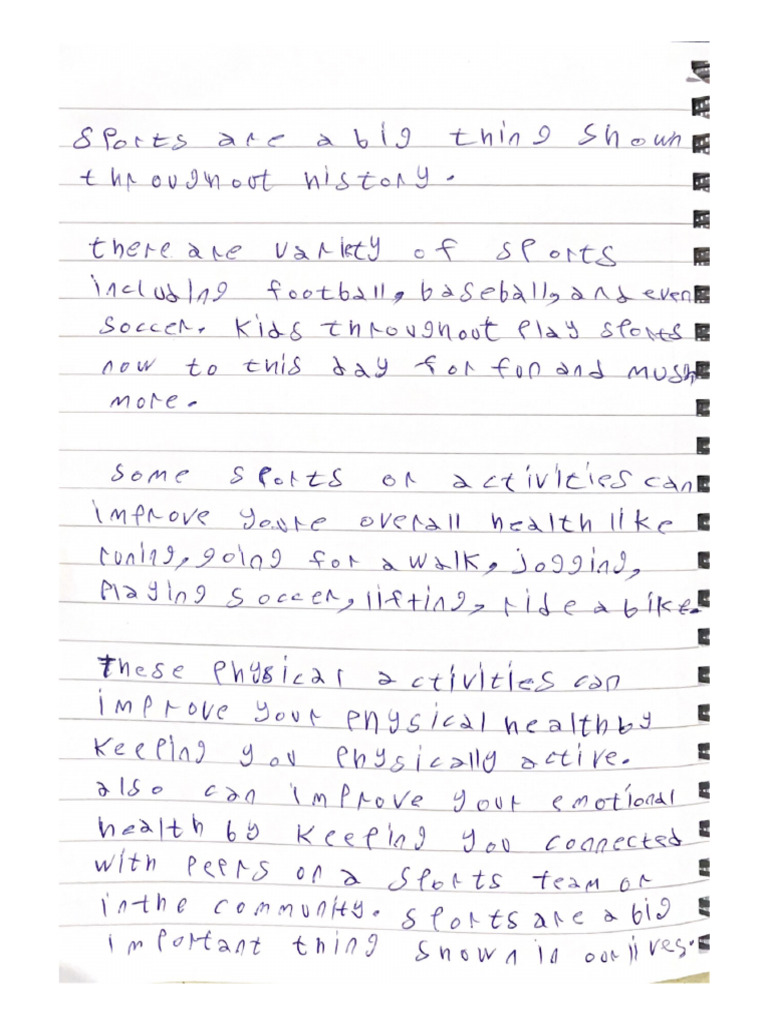 Sports are a big thing shown
throughout history.
there are variety of sports
including football, baseball, and even
soccer. Kids throughout play sports
now to this day for fun and mush
more.
some sports or activities can
improve youre overall health like
runing, going for a walk, jogging,
playing soccer, lifting, ride a bike.
These physical activities can
improve your physical health by
keeping you physically active.
also can improve your emotional
health by keeping you connected
with peers on a sports team or
in the community. sports are a big
important thing shown in our lives.